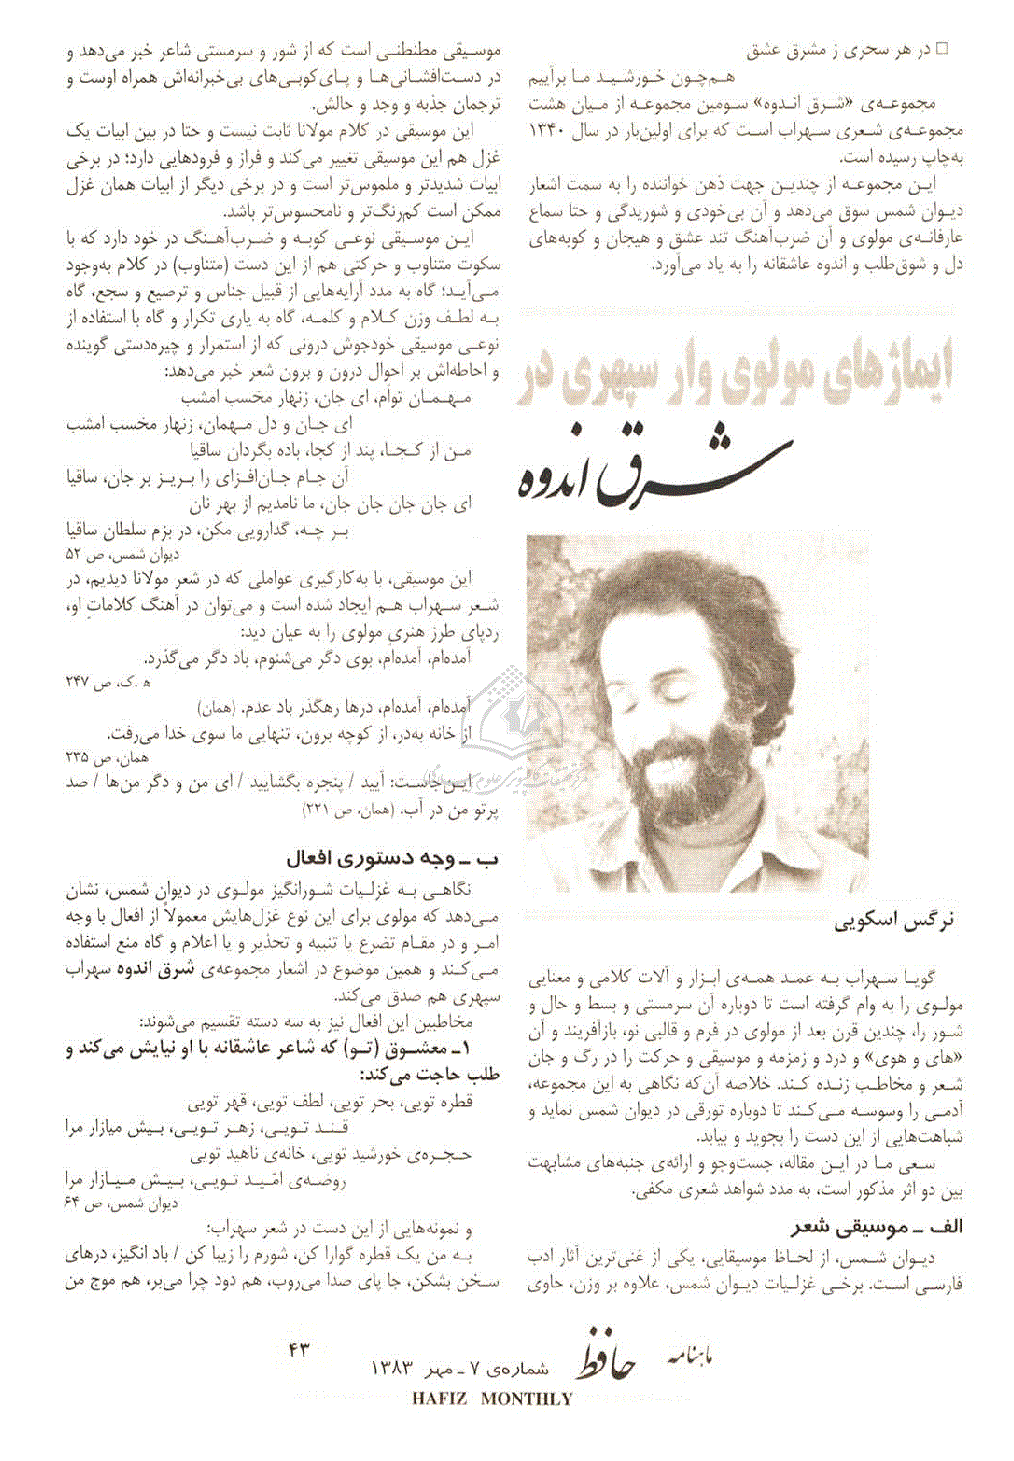 □ در هر سحری ز مشرق عشق
هم‌چون خورشید ما برآییم
مجموعه‌ی «شرق اندوه» سومین مجموعه از میان هشت
مجموعه‌ی شعری سهراب است که برای اولین‌بار در سال ۱۳۴۰
به‌چاپ رسیده است.
این مجموعه از چندین جهت ذهن خواننده را به سمت اشعار
دیوان شمس سوق می‌دهد و آن بی‌خودی و شوریدگی و حتا سماع
عارفانه‌ی مولوی و آن ضرب‌آهنگ تند عشق و هیجان و کوبه‌های
دل و شوق‌طلب و اندوه عاشقانه را به یاد می‌آورد.
ایماژهای مولوی وار سپهری در
شرق اندوه
نرگس اسکویی
گویا سهراب به عمد همه‌ی ابزار و آلات کلامی و معنایی
مولوی را به وام گرفته است تا دوباره آن سرمستی و بسط و حال و
شور را، چندین قرن بعد از مولوی در فرم و قالبی نو، بازآفریند و آن
«های و هوی» و درد و زمزمه و موسیقی و حرکت را در رگ و جان
شعر و مخاطب زنده کند. خلاصه آن‌که نگاهی به این مجموعه،
آدمی را وسوسه می‌کند تا دوباره تورقی در دیوان شمس نماید و
شباهت‌هایی از این دست را بجوید و بیابد.
سعی ما در این مقاله، جست‌وجو و ارائه‌ی جنبه‌های مشابهت
بین دو اثر مذکور است، به مدد شواهد شعری مکفی.
الف ـ موسیقی شعر
دیوان شمس، از لحاظ موسیقایی، یکی از غنی‌ترین آثار ادب
فارسی است. برخی غزلیات دیوان شمس، علاوه بر وزن، حاوی
موسیقی مطنطنی است که از شور و سرمستی شاعر خبر می‌دهد و
در دست‌افشانی‌ها و پای‌کوبی‌های بی‌خبرانه‌اش همراه اوست و
ترجمان جذبه و وجد و حالش.
این موسیقی در کلام مولانا ثابت نیست و حتا در بین ابیات یک
غزل هم این موسیقی تغییر می‌کند و فراز و فرودهایی دارد؛ در برخی
ابیات شدیدتر و ملموس‌تر است و در برخی دیگر از ابیات همان غزل
ممکن است کم‌رنگ‌تر و نامحسوس‌تر باشد.
این موسیقی نوعی کوبه و ضرب‌آهنگ در خود دارد که با
سکوت متناوب و حرکتی هم از این دست (متناوب) در کلام به‌وجود
می‌آید؛ گاه به مدد آرایه‌هایی از قبیل جناس و ترصیع و سجع، گاه
به لطف وزن کلام و کلمه، گاه به یاری تکرار و گاه با استفاده از
نوعی موسیقی خودجوش درونی که از استمرار و چیره‌دستی گوینده
و احاطه‌اش بر احوال درون و برون شعر خبر می‌دهد:
مهمان توأم، ای جان، زنهار مخسب امشب
ای جان و دل مهمان، زنهار مخسب امشب
من از کجا، پند از کجا، باده بگردان ساقیا
آن جام جان‌افزای را بریز بر جان، ساقیا
ای جان جان جان جان، ما نامدیم از بهر نان
بر چه، گدارویی مکن، در بزم سلطان ساقیا
دیوان شمس، ص ۵۲
این موسیقی، با به‌کارگیری عواملی که در شعر مولانا دیدیم، در
شعر سهراب هم ایجاد شده است و می‌توان در آهنگ کلاماتِ او،
ردپای طرز هنری مولوی را به عیان دید:
آمده‌ام، آمده‌ام، بوی دگر می‌شنوم، باد دگر می‌گذرد.
ه .ک، ص ۲۴۷
آمده‌ام، آمده‌ام، درها رهگذر باد عدم. (همان)
از خانه به‌در، از کوچه برون، تنهایی ما سوی خدا می‌رفت.
همان، ص ۲۳۵
این‌جاست: آیید / پنجره بگشایید / ای من و دگر من‌ها / صد
پرتو من در آب. (همان، ص ۲۲۱)
ب ـ وجه دستوری افعال
نگاهی به غزلیات شورانگیز مولوی در دیوان شمس، نشان
می‌دهد که مولوی برای این نوع غزل‌هایش معمولاً از افعال با وجه
امر و در مقام تضرع یا تنبیه و تحذیر و یا اعلام و گاه منع استفاده
می‌کند و همین موضوع در اشعار مجموعه‌ی شرق اندوه سهراب
سپهری هم صدق می‌کند.
مخاطبین این افعال نیز به سه دسته تقسیم می‌شوند:
۱ـ معشوق (تو) که شاعر عاشقانه با او نیایش می‌کند و
طلب حاجت می‌کند:
قطره تویی، بحر تویی، لطف تویی، قهر تویی
قند تویی، زهر تویی، بیش میازار مرا
حجره‌ی خورشید تویی، خانه‌ی ناهید تویی
روضه‌ی امّید تویی، بیش میازار مرا
دیوان شمس، ص ۶۴
و نمونه‌هایی از این دست در شعر سهراب:
به من یک قطره گوارا کن، شورم را زیبا کن / باد انگیز، درهای
سخن بشکن، جا پای صدا می‌روب، هم دود چرا می‌بر، هم موج من
ماهنامه حافظ شماره‌ی ۷ ـ مهر ۱۳۸۳ ۴۳
HAFIZ MONTHLY